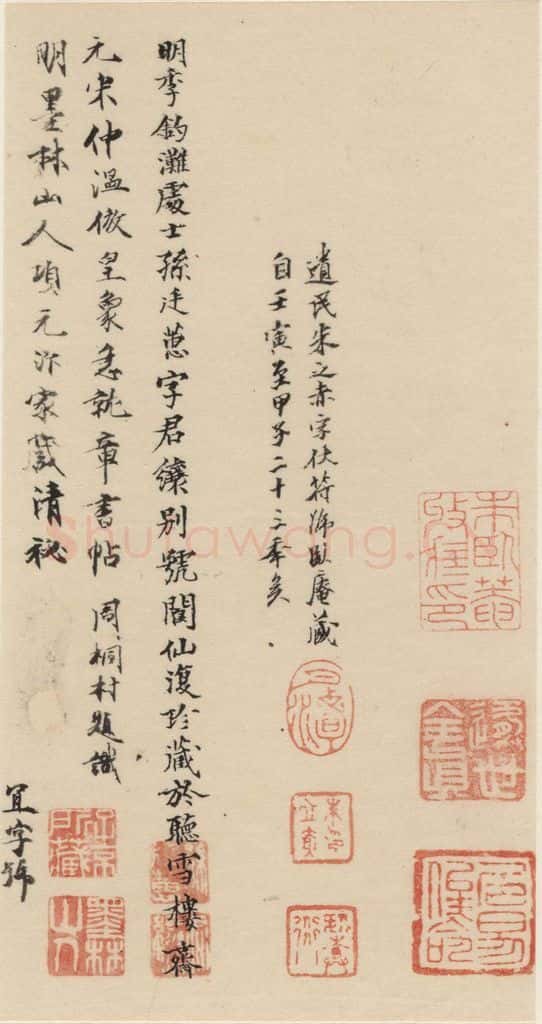 遺民朱之赤字伏符號臥庵藏
自壬寅至甲子二十三年矣
明季釣灘處士孫廷字君別號閬仙復珍藏於聽雪樓齋
元宋仲溫倣皇象急就章書帖 周桐村題識
明墨林山人項元汴家藏清祕
宜字號
朱臥菴收藏印
墨林山人